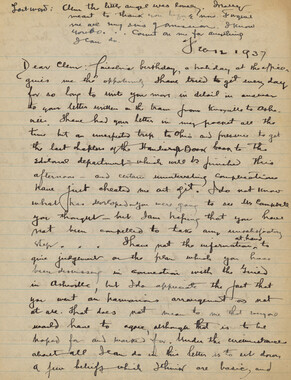 Last word: Clem the little angel was
meant to thank you
me are my
you do. Count on me for anything
I can do
Feb 12 1937
Dear Clem: Lincoln's birthday, a holiday at the office
gives me the opportunity I have tried to get every day
for so long to write you more in detail in answer
to your letter written on the train from Knoxville to Ashe-
ville. I have had your letter in my pocket all the
time but an unexpected trip to Ohio and pressure to get
the last chapters of the Handicraft Book back to the
editorial department - which will be finished this
afternoon - and certain uninteresting complications
have just cheated me out of it. I do not know
what has developed - you were going to see Mr Campbell
you thought - but I am hoping that you have
not been compelled to take any unsatisfactory
step. I have not the information at hand to
give judgement on the plan which you have
been discussing in connection with the Guild
in Asheville, but I do appreciate the fact that
you want an harmonious arrangement or not
at all. That does not mean to me that everyone
would have to agree, although that is to be
hoped for and worked for. Under the circumstances
about all I can do in this letter is to set down
a few beliefs which I think are basic, and